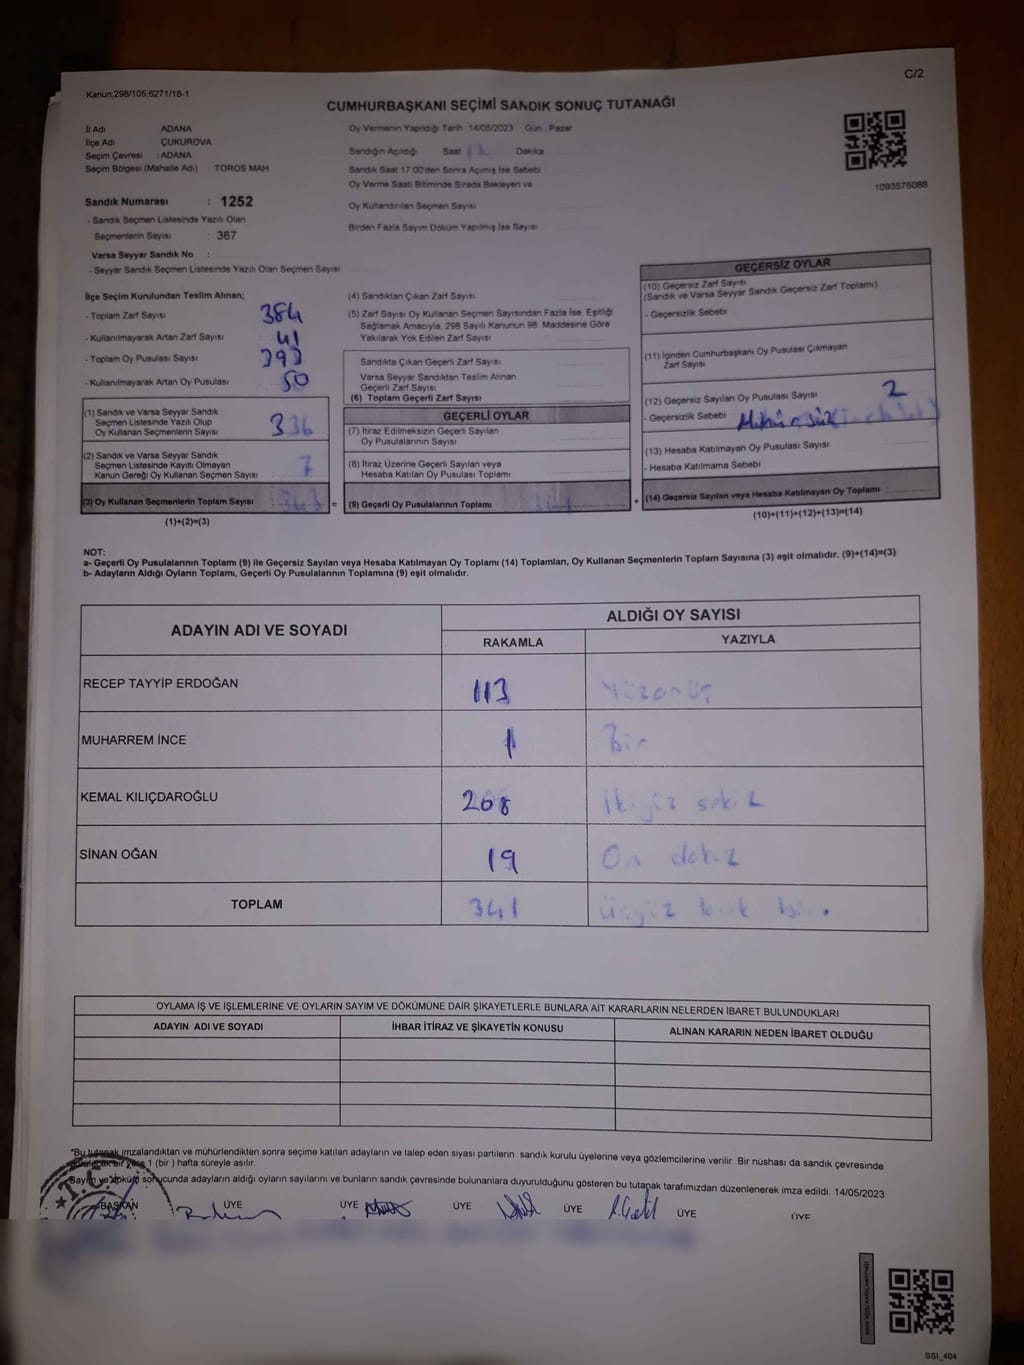 C/2
Kanun;298/105,6271/18-1
CUMHURBAŞKANI SEÇİMİ SANDIK SONUÇ TUTANAĞI
İl Adı ADANA
İlçe Adı ÇUKUROVA
Seçim Çevresi : ADANA
Seçim Bölgesi (Mahalle Adı) TOROS MAH
Oy Vermenin Yapıldığı Tarih 14/05/2023 Gün Pazar
Sandığın Açıldığı Saat Dakika
Sandık Saat 17:00'den Sonra Açımış İse Sebebi
Oy Verme Saati Bitiminde Sırada Bekleyen ve
Oy Kullandırılan Seçmen Sayısı
Birden Fazla Sayım Döküm Yapılmış İse Sayısı
1093576088
Sandık Numarası : 1252
- Sandık Seçmen Listesinde Yazılı Olan
Seçmenlerin Sayısı : 367
Varsa Seyyar Sandık No :
- Seyyar Sandık Seçmen Listesinde Yazılı Olan Seçmen Sayısı
İlçe Seçim Kurulundan Teslim Alınan;
- Toplam Zarf Sayısı 384
- Kullanılmayarak Artan Zarf Sayısı 41
- Toplam Oy Pusulası Sayısı 393
- Kullanılmayarak Artan Oy Pusulası 50
(1) Sandık ve Varsa Seyyar Sandık
Seçmen Listesinde Yazılı Olup
Oy Kullanan Seçmenlerin Sayısı 336
(2) Sandık ve Varsa Seyyar Sandık
Seçmen Listesinde Kayıtlı Olmayan
Kanun Gereği Oy Kullanan Seçmen Sayısı 7
(3) Oy Kullanan Seçmenlerin Toplam Sayısı 343 =
(1)+(2)=(3)
(4) Sandıktan Çıkan Zarf Sayısı
(5) Zarf Sayısı Oy Kullanan Seçmen Sayısından Fazla İse, Eşitliği
Sağlamak Amacıyla, 298 Sayılı Kanunun 98. Maddesine Göre
Yakılarak Yok Edilen Zarf Sayısı
Sandıkta Çıkan Geçerli Zarf Sayısı
Varsa Seyyar Sandıktan Teslim Alınan
Geçerli Zarf Sayısı
(6) Toplam Geçerli Zarf Sayısı
GEÇERLİ OYLAR
(7) İtiraz Edilmeksizin Geçerli Sayılan
Oy Pusulalarının Sayısı
(8) İtiraz Üzerine Geçerli Sayılan veya
Hesaba Katılan Oy Pusulası Toplamı
(9) Geçerli Oy Pusulalarının Toplamı +
GEÇERSİZ OYLAR
(10) Geçersiz Zarf Sayısı
(Sandık ve Varsa Seyyar Sandık Geçersiz Zarf Toplamı)
- Geçersizlik Sebebi
(11) İçinden Cumhurbaşkanı Oy Pusulası Çıkmayan
Zarf Sayısı
(12) Geçersiz Sayılan Oy Pusulası Sayısı 2
- Geçersizlik Sebebi
(13) Hesaba Katılmayan Oy Pusulası Sayısı
- Hesaba Katılmama Sebebi
(14) Geçersiz Sayılan veya Hesaba Katılmayan Oy Toplamı
(10)+(11)+(12)+(13)=(14)
NOT:
a- Geçerli Oy Pusulalarının Toplamı (9) ile Geçersiz Sayılan veya Hesaba Katılmayan Oy Toplamı (14) Toplamları, Oy Kullanan Seçmenlerin Toplam Sayısına (3) eşit olmalıdır. (9)+(14)=(3)
b- Adayların Aldığı Oyların Toplamı, Geçerli Oy Pusulalarının Toplamına (9) eşit olmalıdır.
ADAYIN ADI VE SOYADI ALDIĞI OY SAYISI
RAKAMLA YAZIYLA
RECEP TAYYİP ERDOĞAN 113 Yüzonüç
MUHARREM İNCE 1 Bir
KEMAL KILIÇDAROĞLU 208 İkiyüz sekiz
SİNAN OĞAN 19 On dokuz
TOPLAM 341 Üçyüz kırk bir
OYLAMA İŞ VE İŞLEMLERİNE VE OYLARIN SAYIM VE DÖKÜMÜNE DAİR ŞİKAYETLERLE BUNLARA AİT KARARLARIN NELERDEN İBARET BULUNDUKLARI
ADAYIN ADI VE SOYADI İHBAR İTİRAZ VE ŞİKAYETİN KONUSU ALINAN KARARIN NEDEN İBARET OLDUĞU
*Bu tutanak imzalandıktan ve mühürlendikten sonra seçime katılan adayların ve talep eden siyasi partilerin sandık kurulu üyelerine veya gözlemcilerine verilir. Bir nüshası da sandık çevresinde
görülecek bir yere 1 (bir) hafta süreyle asılır.
Sayım ve döküm sonucunda adayların aldığı oyların sayılarını ve bunların sandık çevresinde bulunanlara duyurulduğunu gösteren bu tutanak tarafımızdan düzenlenerek imza edildi. 14/05/2023
T.C.
BAŞKAN ÜYE ÜYE ÜYE ÜYE ÜYE ÜYE
SSI_404